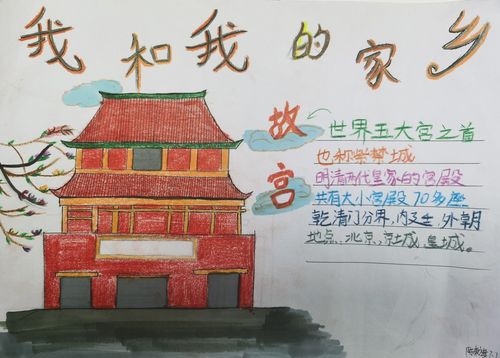 我和我的家乡
故宫
世界五大宫之首
也称紫禁城
明清两代皇家的宫殿
共有大小宫殿70多座
乾清门分界，内廷外朝
地点：北京，京城，皇城。